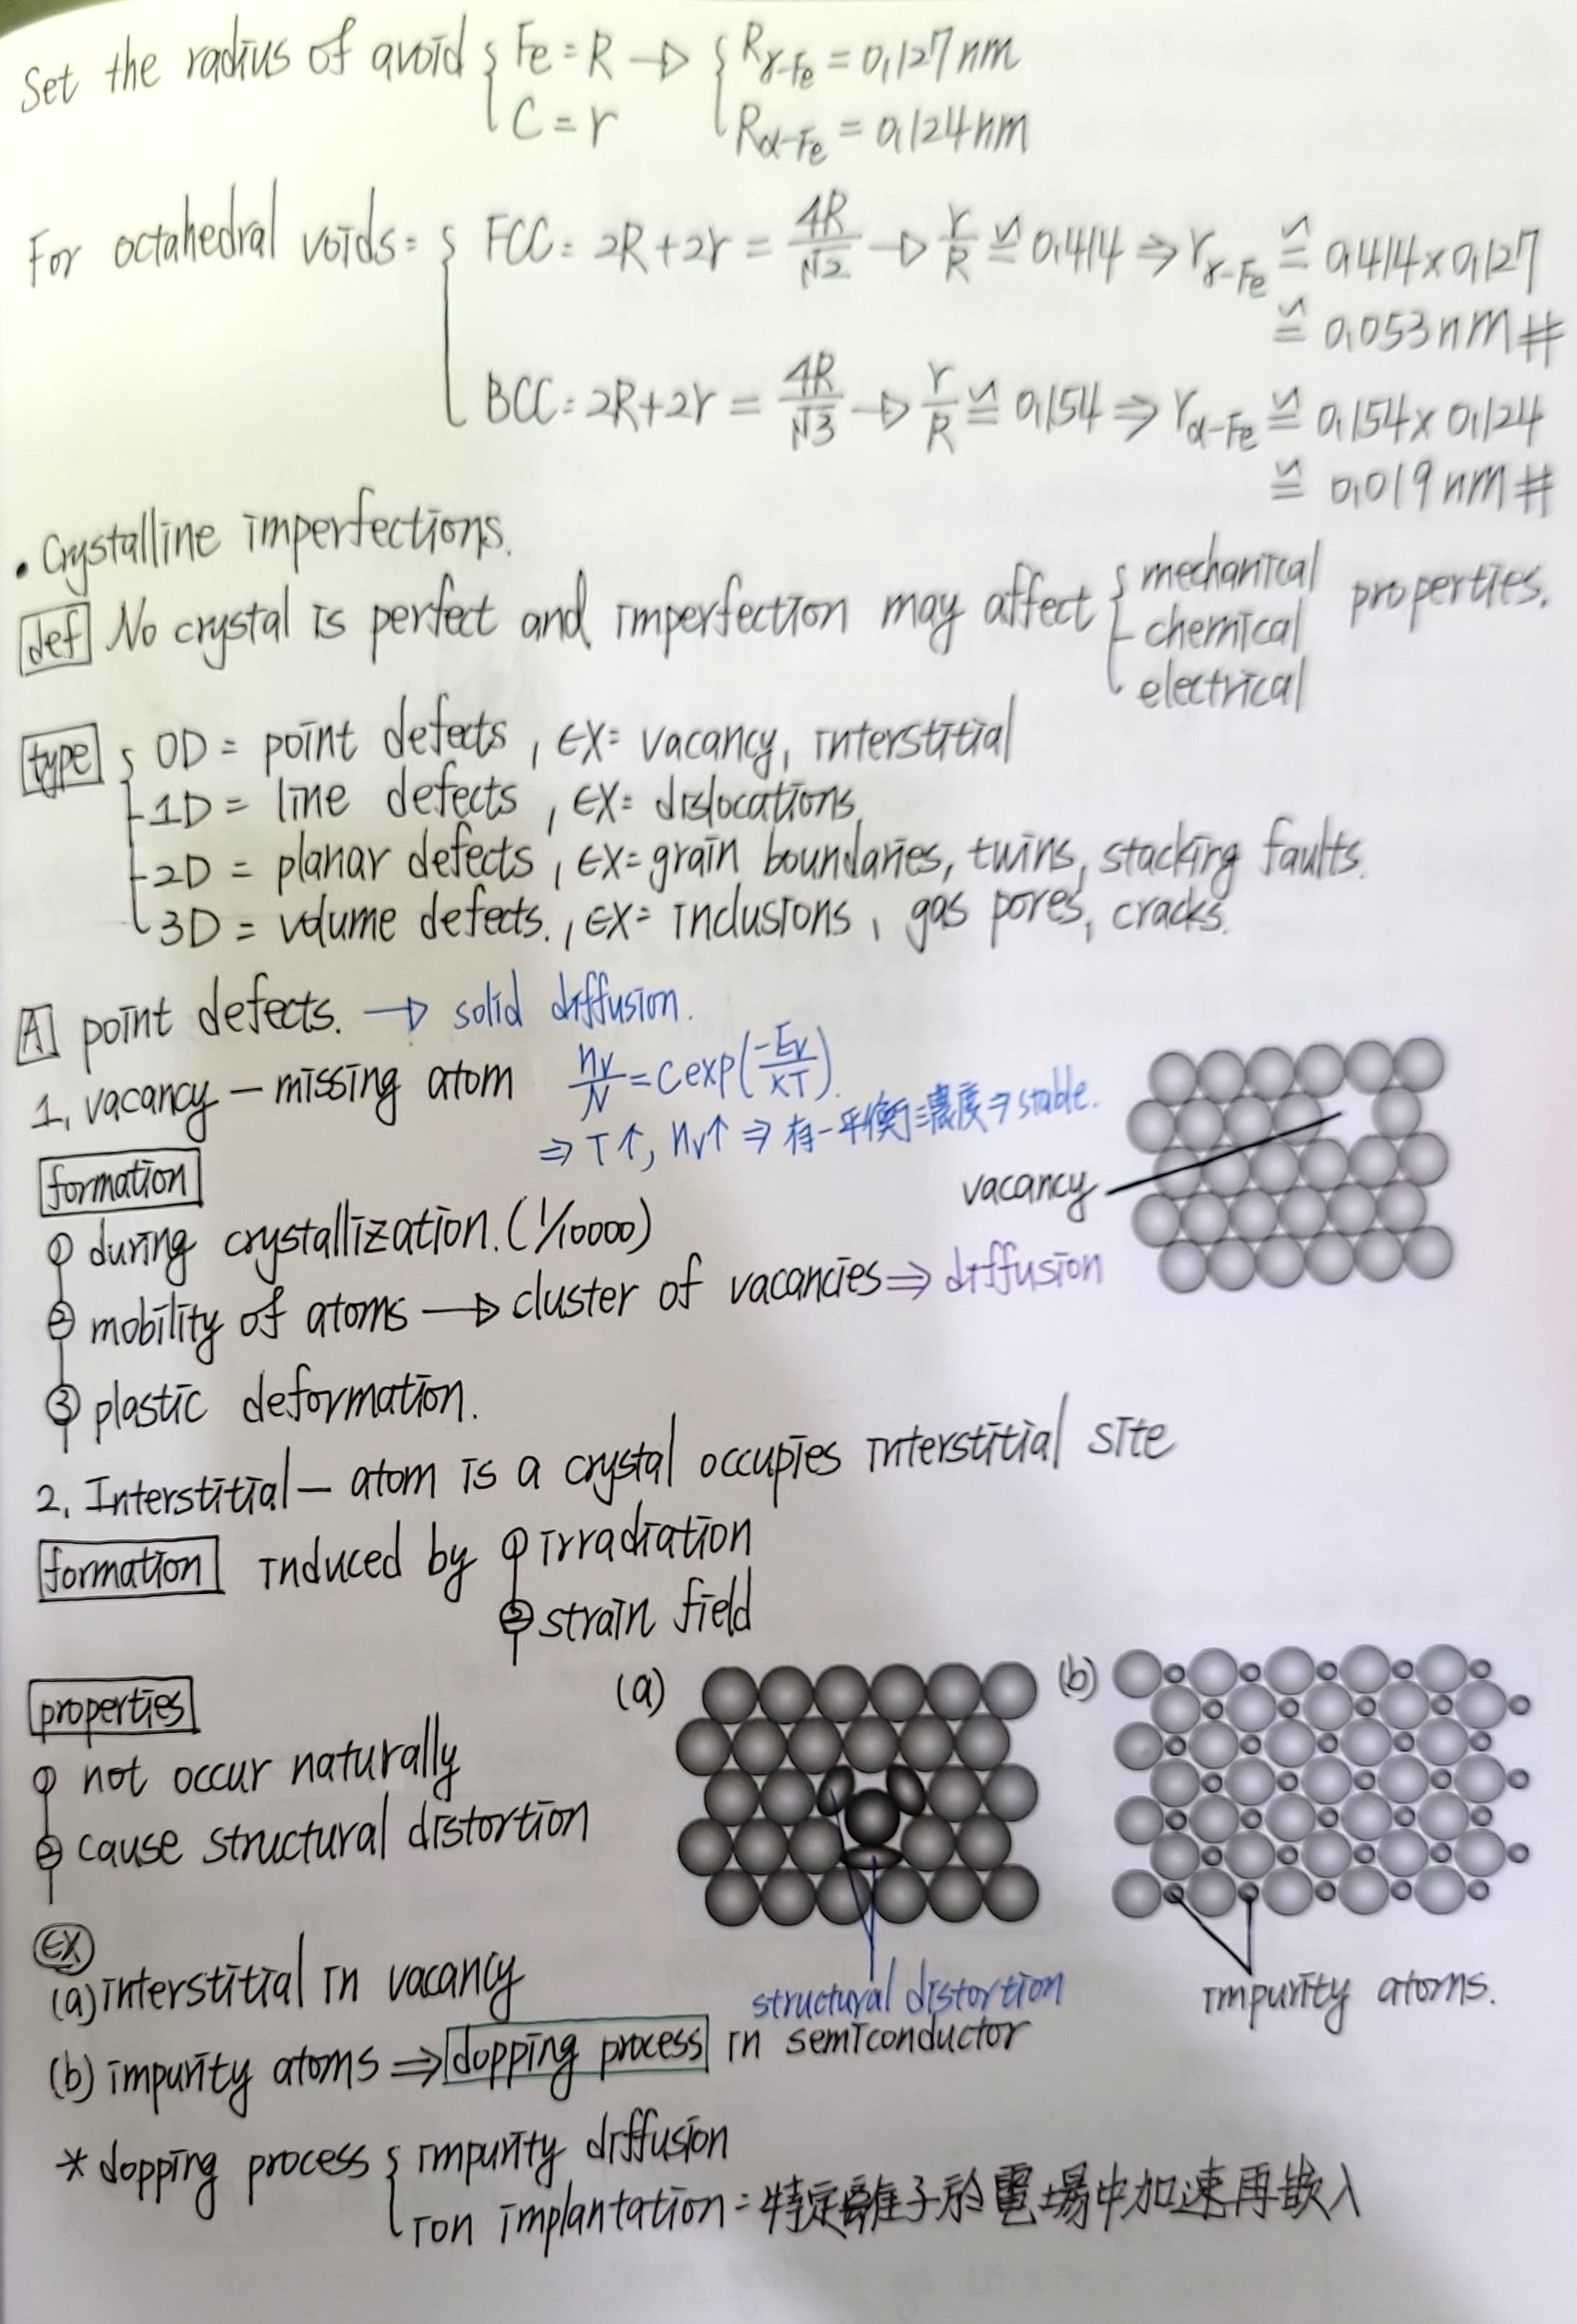 Set the radius of avoid { Fe = R → { Rγ-Fe = 0.127nm
C = r Rα-Fe = 0.124nm
For octahedral voids = { FCC = 2R+2r = 4R/√2 → r/R ≌ 0.414 ⇒ rγ-Fe ≌ 0.414×0.127
≌ 0.053nm #
BCC = 2R+2r = 4R/√3 → r/R ≌ 0.154 ⇒ rα-Fe ≌ 0.154×0.124
≌ 0.019nm #
• Crystalline imperfections.
def No crystal is perfect and imperfection may affect { mechanical properties.
chemical
electrical
type { 0D = point defects, EX = vacancy, interstitial
1D = line defects, EX = dislocations.
2D = planar defects, EX = grain boundaries, twins, stacking faults.
3D = volume defects., EX = inclusions, gas pores, cracks.
A point defects. → solid diffusion.
1. vacancy — missing atom nv/N = C exp(-Ev/KT).
⇒ T↑, nv↑ ⇒ 有一平衡濃度 ⇒ stable.
vacancy
formation
① during crystallization. (1/10000)
② mobility of atoms → cluster of vacancies ⇒ diffusion
③ plastic deformation.
2. Interstitial — atom is a crystal occupies interstitial site
formation induced by ① irradiation
② strain field
properties
(a) (b)
① not occur naturally
② cause structural distortion
EX
(a) interstitial in vacancy
structural distortion
impurity atoms.
(b) impurity atoms ⇒ dopping process in semiconductor
* dopping process { impurity diffusion
ion implantation = 特定離子於電場中加速再嵌入